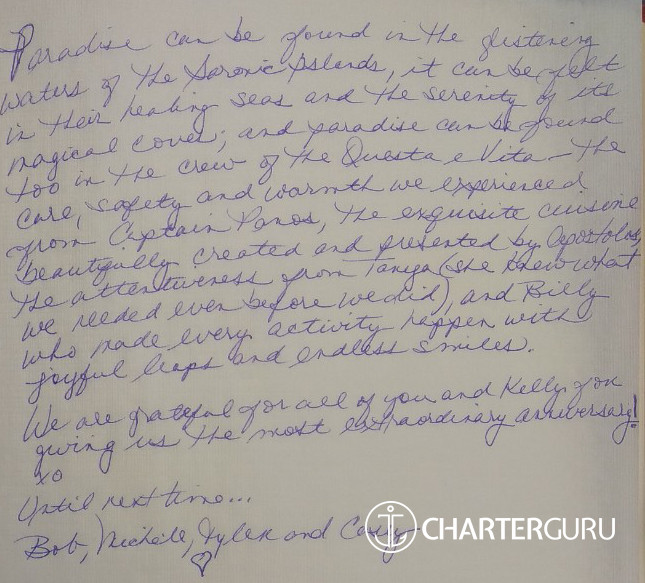 Paradise can be found in the glistening
waters of the Saronic Islands, it can be felt
in their healing seas and the serenity of its
magical coves; and paradise can be found
too in the crew of the Questa e Vita – the
care, safety and warmth we experienced
from Captain Panos, the exquisite cuisine
beautifully created and presented by Apostolos,
the attentiveness from Tanya (she knew what
we needed even before we did), and Billy
who made every activity happen with
joyful leaps and endless smiles.
We are grateful for all of you and Kelly for
giving us the most extraordinary anniversary!
xo
Until next time...
Bob, Michele, Tyler and Casey
♡
CHARTERGURU